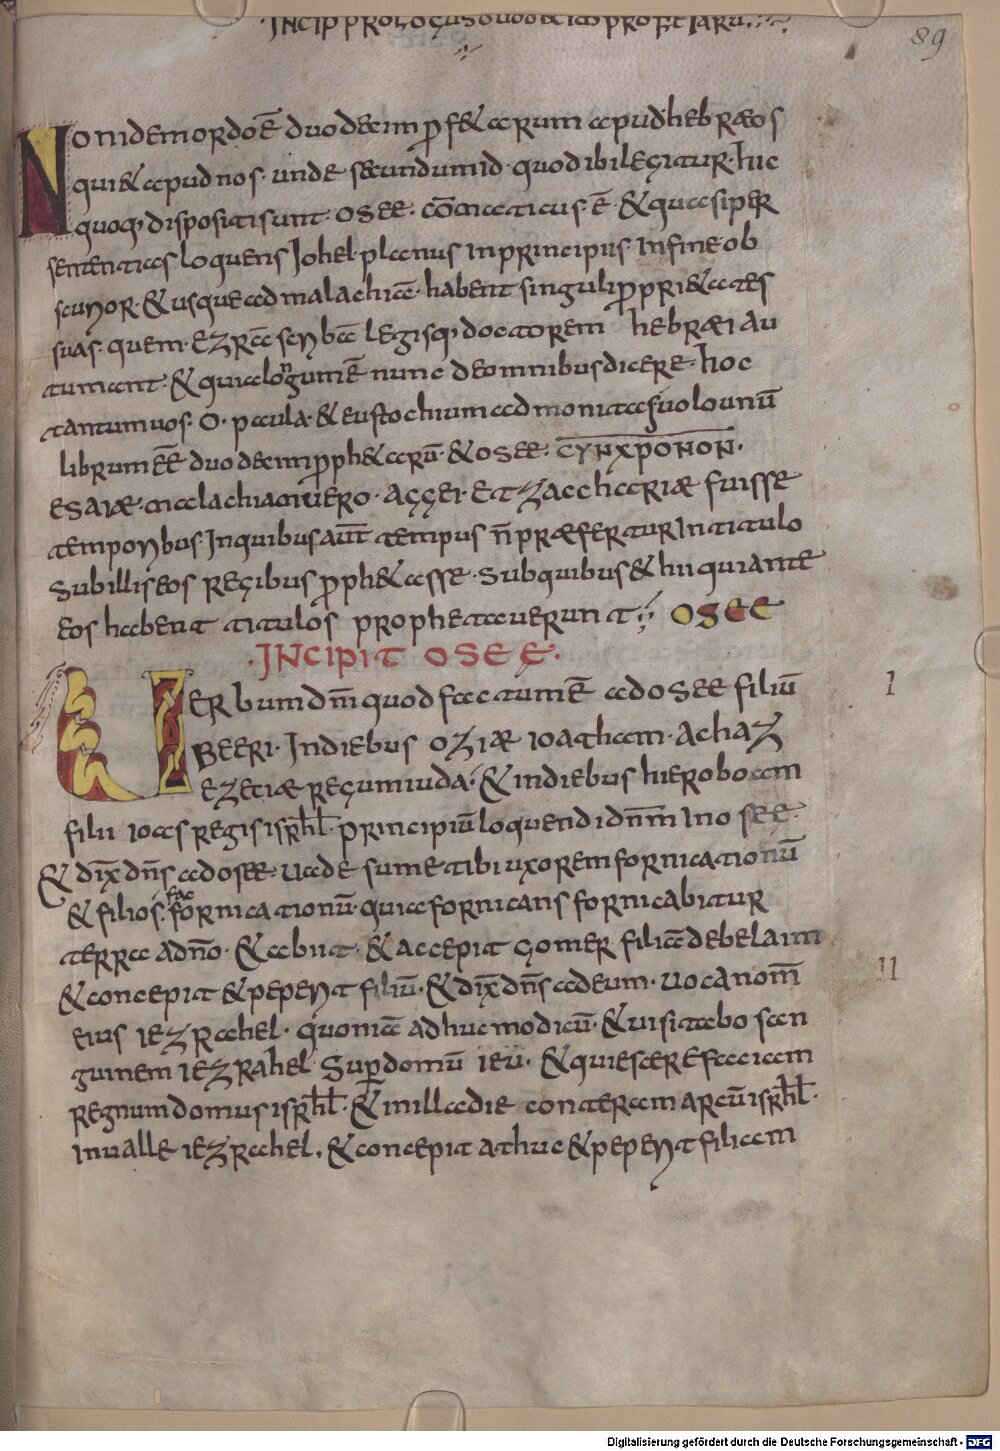 INCIP PROLOGUS DUODECIM PROFETIARU
89
Non idem ordo ē duodecim prof&arum apud hebræos
qui & apud nos. unde secundum id quod ibi legitur. hic
quoq; dispositi sunt. osee. cōmaticus. ē. & quasi per
sententias loquens Johel planus In principiis In fine ob
scurior. & usque ad malachiā. habent singuli propri&ates
suas. quem. ezrā scribā legisq; doctorem hebræi au
tumant. & quia longum ē nunc de omnibus dicere. hoc
tantum uos. o. paula. & eustochium admonitas uolo unū
librum eē duodecim proph&arū. & osee. CΥΝΧΡΟΝΟΝ.
esaiæ. malachiam uero. aggei. et zacchariæ fuisse
temporibus In quibus aūt tempus n̄ præfertur In titulo
sub illis eos regibus proph&asse. sub quibus & hii qui ante
eos habent titulos prophetauerunt; OSEE
.INCIPIT OSEE.
Uerbum dn̄i quod factum ē ad osee filiū
beeri. In diebus oziæ ioatham. achaz
ezeciæ regum iuda. & in diebus hieroboam
filii ioas regis isrhl. principiū loquendi dn̄m In osee
& dix̄ dn̄s ad osee. uade sume tibi uxorem fornicationū
& filios. fac fornicationū. quia fornicans fornicabitur
terra a dn̄o. & abiit. & accepit gomer filiā debelaim
& concepit & peperit filiū. & dix̄ dn̄s ad eum. uoca nom̄
eius iezrahel. quoniā adhuc modicū. & uisitabo san
guinem iezrahel Super domū ieu. & quiescere faciam
regnum domus isrhl. & in illa die conteram arcū isrhl.
in ualle iezrahel. & concepit athuc & peperit filiam
I
II
Digitalisierung gefördert durch die Deutsche Forschungsgemeinschaft - DFG